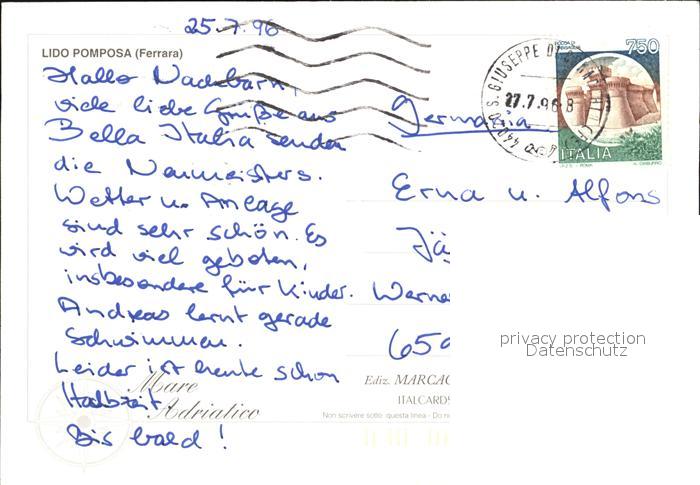 25.7.96
LIDO POMPOSA (Ferrara)
Hallo Nachbarn,
viele liebe Grüße aus
Bella Italia senden
die Neumeisters.
Wetter u. Anlage
sind sehr schön. Es
wird viel geboten,
insbesondere für Kinder.
Andreas lernt gerade
Schwimmen.
Leider ist heute schon
Halbzeit.
Bis bald!
Mare
Adriatico
750
27.7.96-8
S. GIUSEPPE DI
ITALIA
Germania
Erna u. Alfons
Jä
Werne
659
privacy protection
Datenschutz
Ediz. MARCAC
ITALCARDS
Non scrivere sotto questa linea - Do n